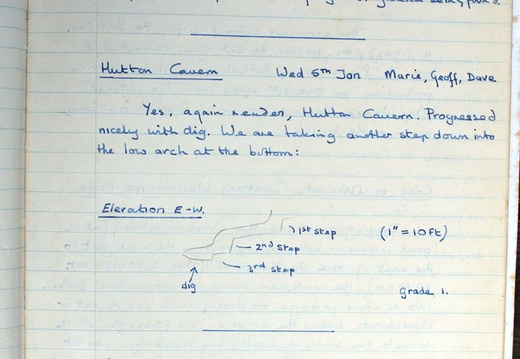 Hutton Cavern Wed 5th Jan Marie, Geoff, Dave
Yes, again reader, Hutton Cavern. Progressed
nicely with dig. We are taking another step down into
the low arch at the bottom:
Elevation E-W.
1st step (1" = 10ft)
2nd step
3rd step
dig
Grade 1.